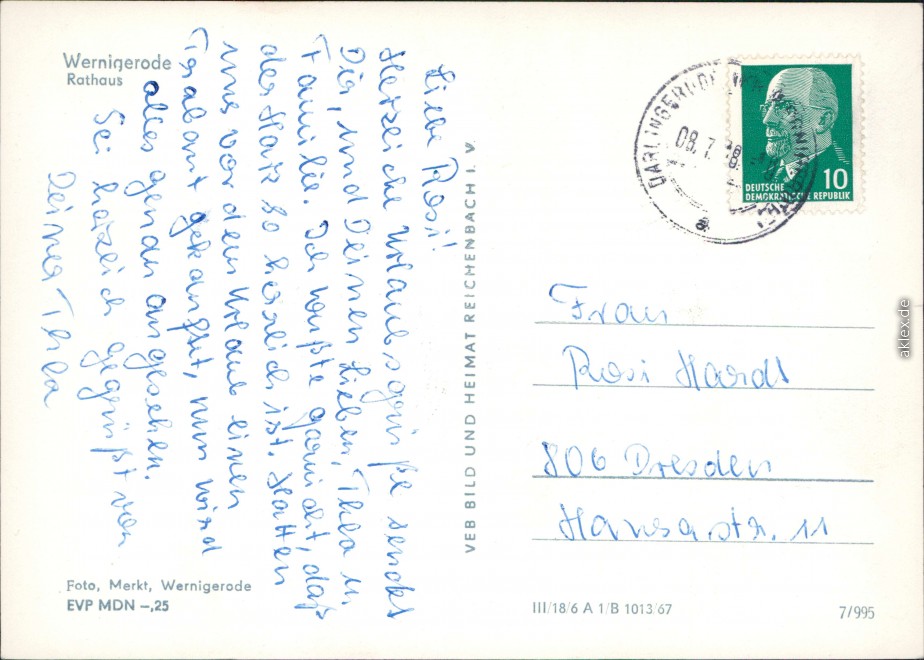 Wernigerode
Rathaus
Liebe Rosi!
Herzliche Urlaubsgrüße sendet
Dir, und Deinen Lieben, Thea u.
Familie. Ich wußte garnicht, daß
der Harz so herrlich ist. Hatten
uns vor dem Urlaub einen
Trabant gekauft, nun wird
alles genau angesehen.
Sei herzlich gegrüßt von
Deiner Thea
Foto, Merkt, Wernigerode
EVP MDN –,25
VEB BILD UND HEIMAT REICHENBACH I. V.
DARLINGERODE
08. 7.
DEUTSCHE
DEMOKRATISCHE REPUBLIK
10
Frau
Rosi Hardt
806 Dresden
Hansastr. 11
III/18/6 A 1/B 1013/67
7/995
akpool.de